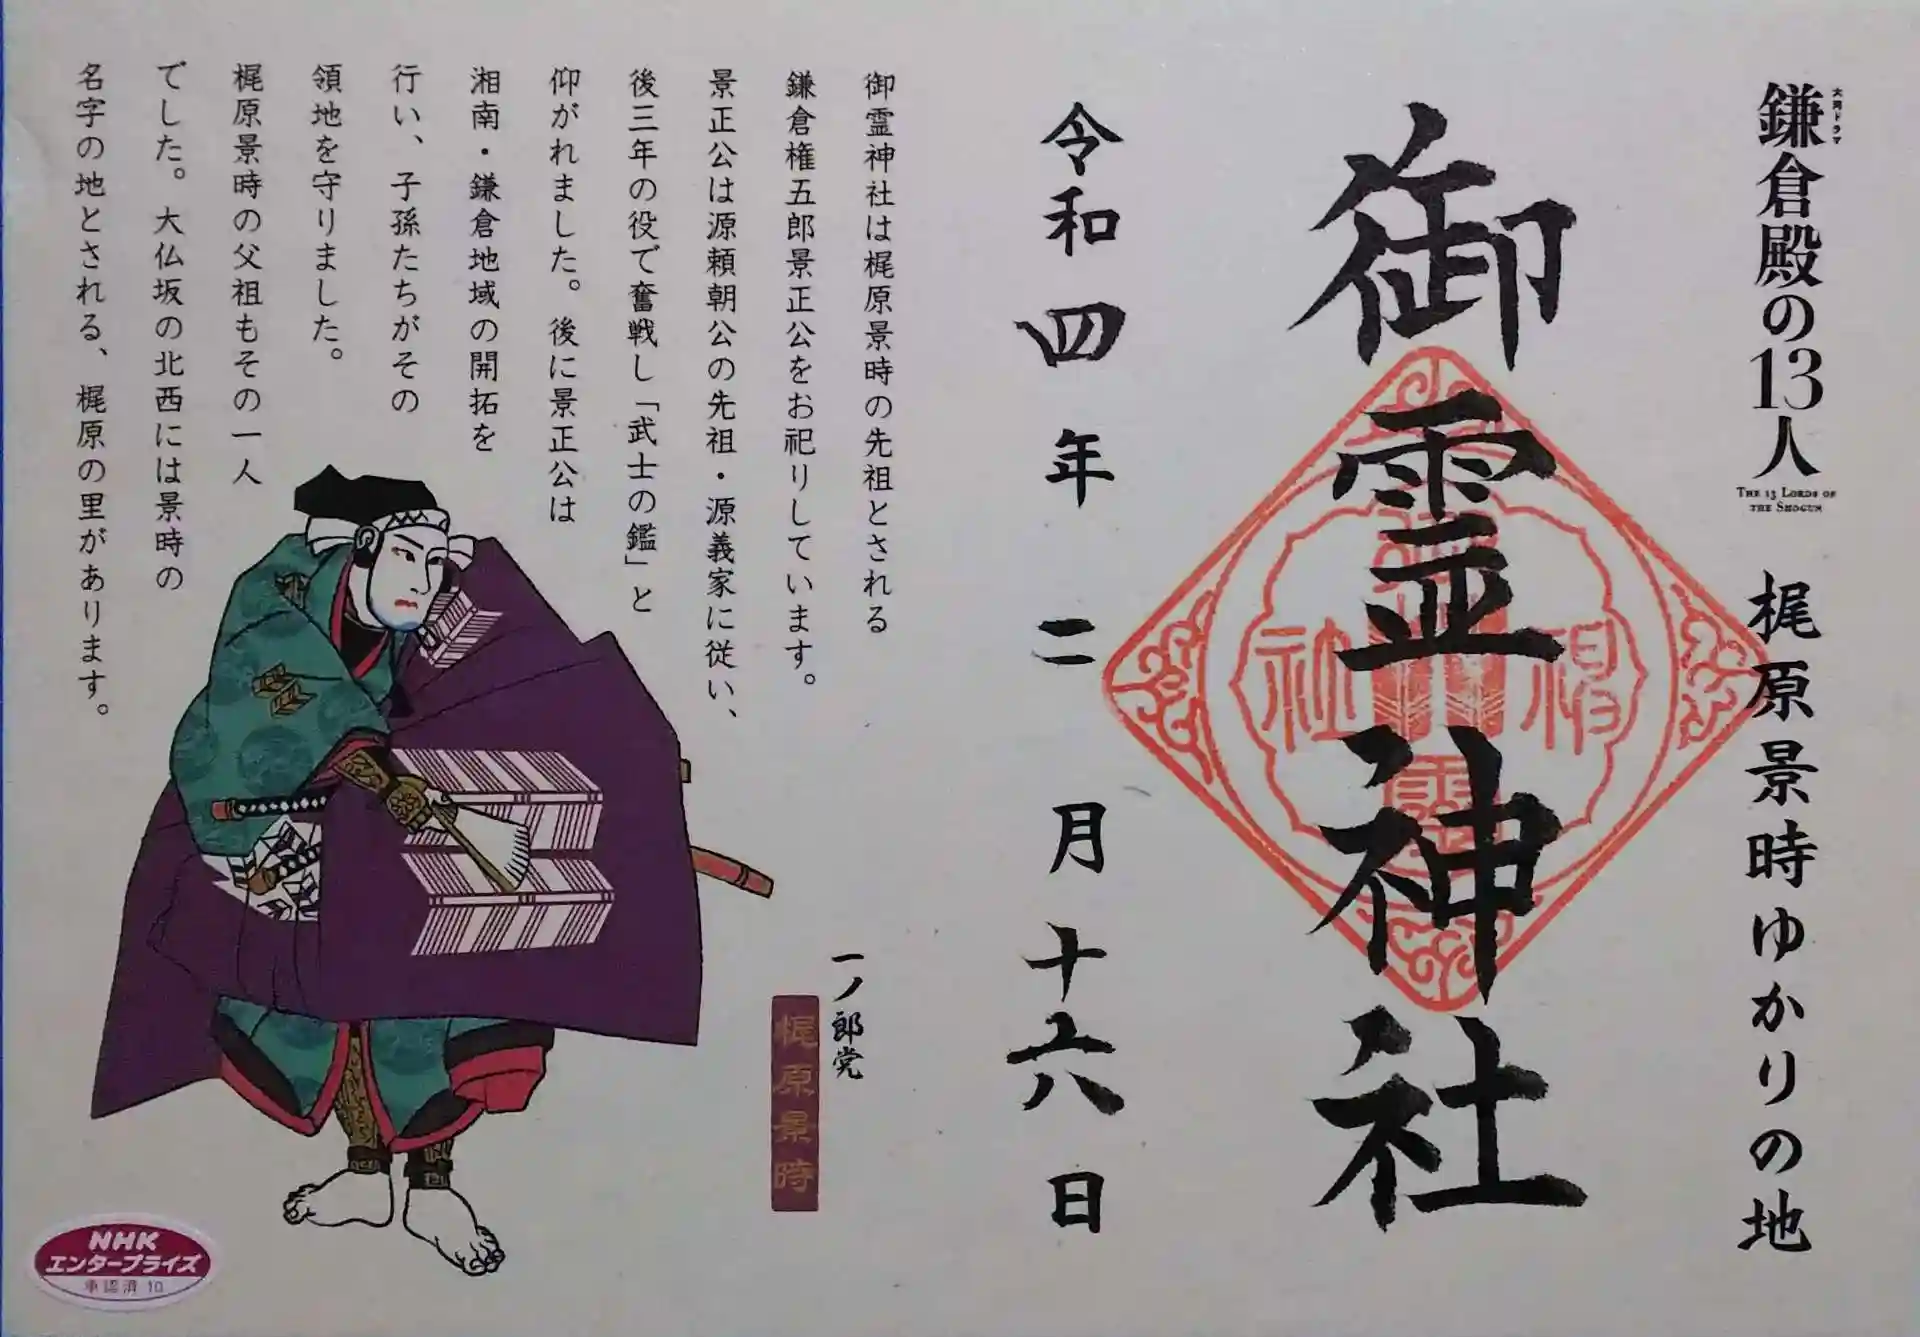 大河ドラマ
鎌倉殿の13人
THE 13 LORDS OF
THE SHOGUN
梶原景時ゆかりの地
御霊神社
令和四年二月十六日
御霊神社は梶原景時の先祖とされる
鎌倉権五郎景正公をお祀りしています。
景正公は源頼朝公の先祖・源義家に従い、
後三年の役で奮戦し「武士の鑑」と
仰がれました。後に景正公は
湘南・鎌倉地域の開拓を
行い、子孫たちがその
領地を守りました。
梶原景時の父祖もその一人
でした。大仏坂の北西には景時の
名字の地とされる、梶原の里があります。
一ノ郎党
梶原景時
NHK
エンタープライズ